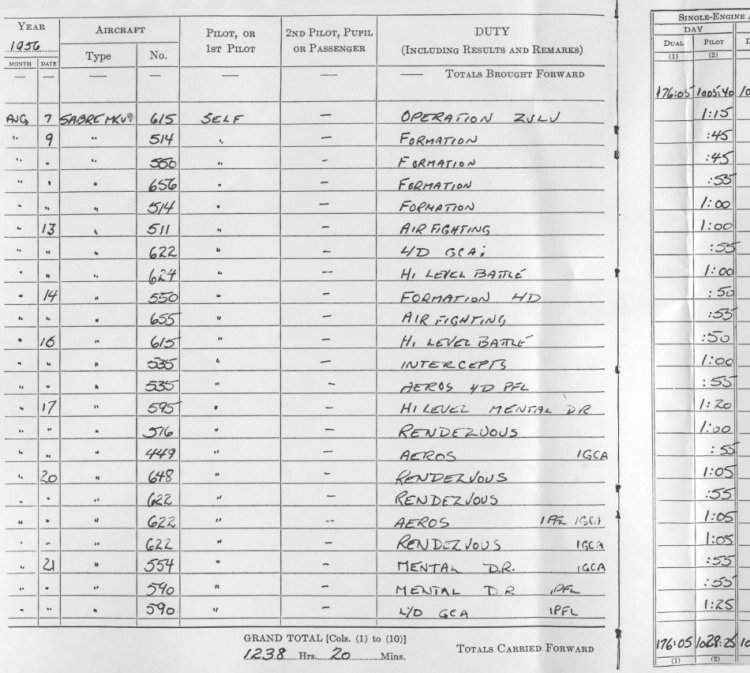 YEAR AIRCRAFT PILOT, OR 1ST PILOT 2ND PILOT, PUPIL OR PASSENGER DUTY (INCLUDING RESULTS AND REMARKS) SINGLE-ENGINE
1956 DAY
MONTH DATE Type No. DUAL PILOT
(1) (2)
— — — — — — — TOTALS BROUGHT FORWARD
176:05 1005:40
AUG 7 SABRE MKV 615 SELF — OPERATION ZULU 1:15
" 9 " 514 " — FORMATION :45
" " " 550 " — FORMATION :45
" " " 656 " — FORMATION :55
" " " 514 " — FORMATION 1:00
" 13 " 511 " — AIR FIGHTING 1:00
" " " 622 " — 4/D GCA; :55
" " " 624 " — HI LEVEL BATTLE 1:00
" 14 " 550 " — FORMATION 4/D :50
" " " 655 " — AIR FIGHTING :55
" 16 " 615 " — HI LEVEL BATTLE :50
" " " 535 " — INTERCEPTS 1:00
" " " 535 " — AEROS 4/D PFL :55
" 17 " 595 " — HI LEVEL MENTAL DR 1:20
" " " 576 " — RENDEZVOUS 1:00
" " " 449 " — AEROS 1GCA :55
" 20 " 648 " — RENDEZVOUS 1:05
" " " 622 " — RENDEZVOUS :55
" " " 622 " — AEROS 1PFL 1GCA 1:05
" " " 622 " — RENDEZVOUS 1GCA 1:05
" 21 " 554 " — MENTAL D.R. 1GCA :55
" " " 590 " — MENTAL D R 1PFL :55
" " " 590 " — 4/D GCA 1PFL 1:25
GRAND TOTAL [Cols. (1) to (10)] TOTALS CARRIED FORWARD 176:05 1028:25
1238 Hrs. 20 Mins. (1) (2)